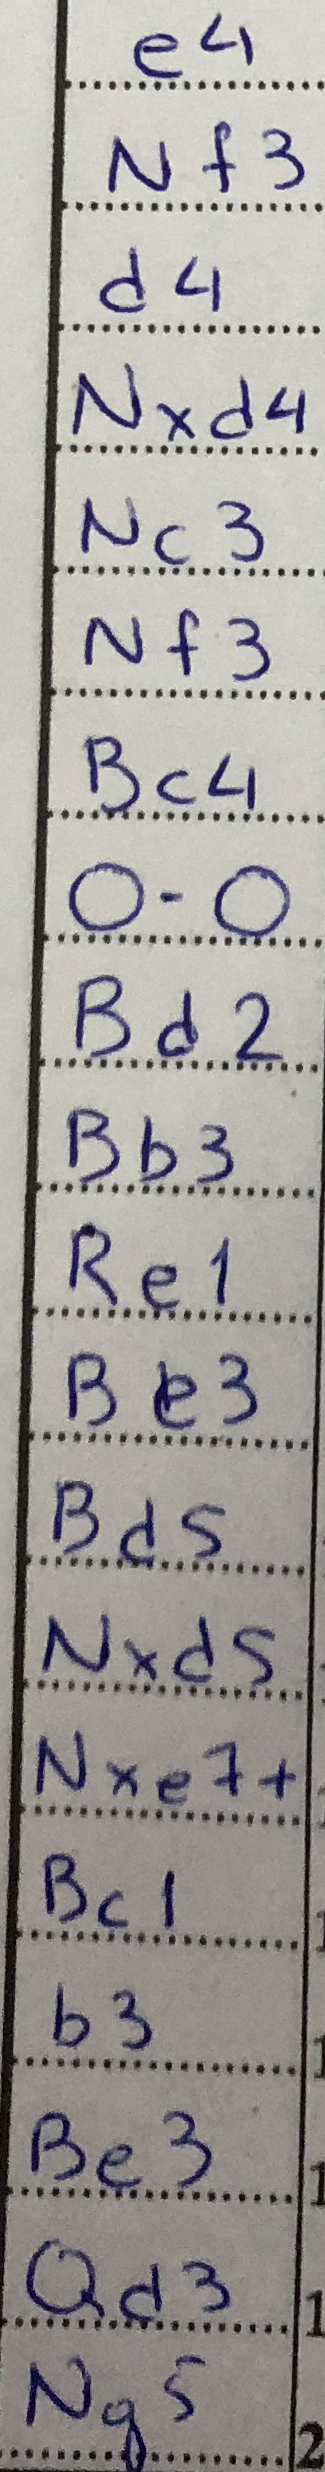 e4
Nf3
d4
Nxd4
Nc3
Nf3
Bc4
O-O
Bd2
Bb3
Re1
Be3
Bd5
Nxd5
Nxe7+
Bc1
b3
Be3
Qd3
Ng5